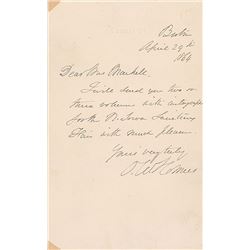 Boston
April 29th
1864
Dear Mrs Markell,
I will send you two or
three volumes with autographs
for the National Sanitary
Fair with much pleasure.
Yours very truly
O. W. Holmes